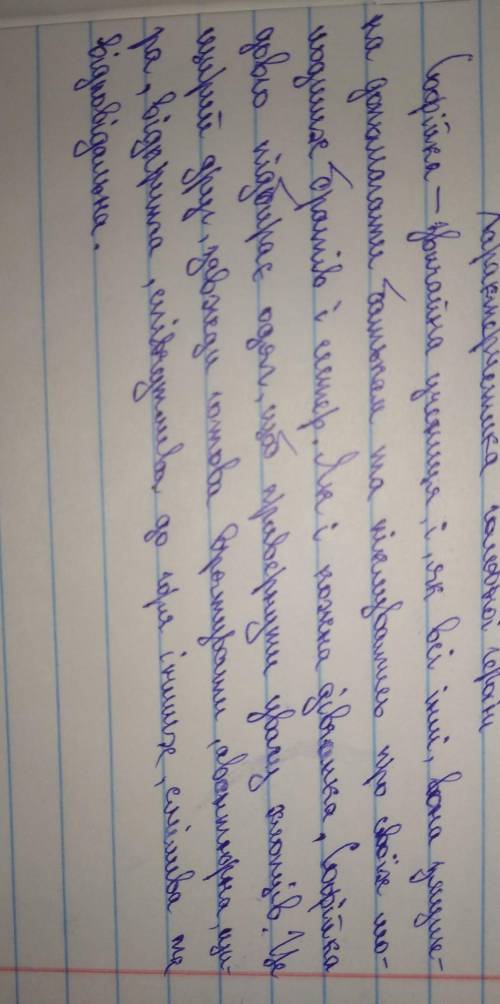 Характеристика головної героїні
Софійка – звичайна учениця, і, як всі інші, вона
на допомагати батькам та піклуватись про своїх мо-
лодших братів і сестер. Як і кожна дівчинка, Софійка
довго підбирає одяг, щоб привернути увагу хлопців. Це
щирий друг, завжди готова врятувати, авантюрна, щи-
ра, відкрита, співчутлива до горя інших, смілива та
відповідальна.